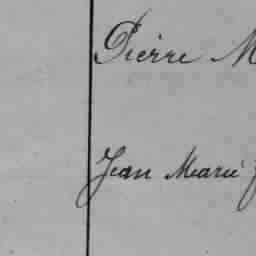 Pierre M
Jean Marie J